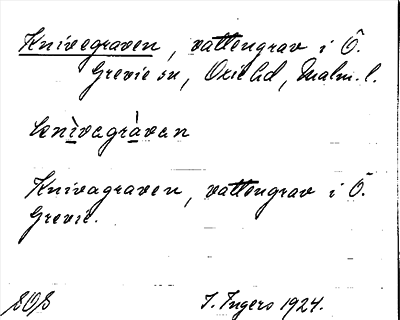 Knivegraven, vattengrav i Ö.
Grevie sn, Oxie hd, Malm. l.
knìvagràvan
Knivagraven, vattengrav i Ö.
Grevie.
I. Ingers 1924.